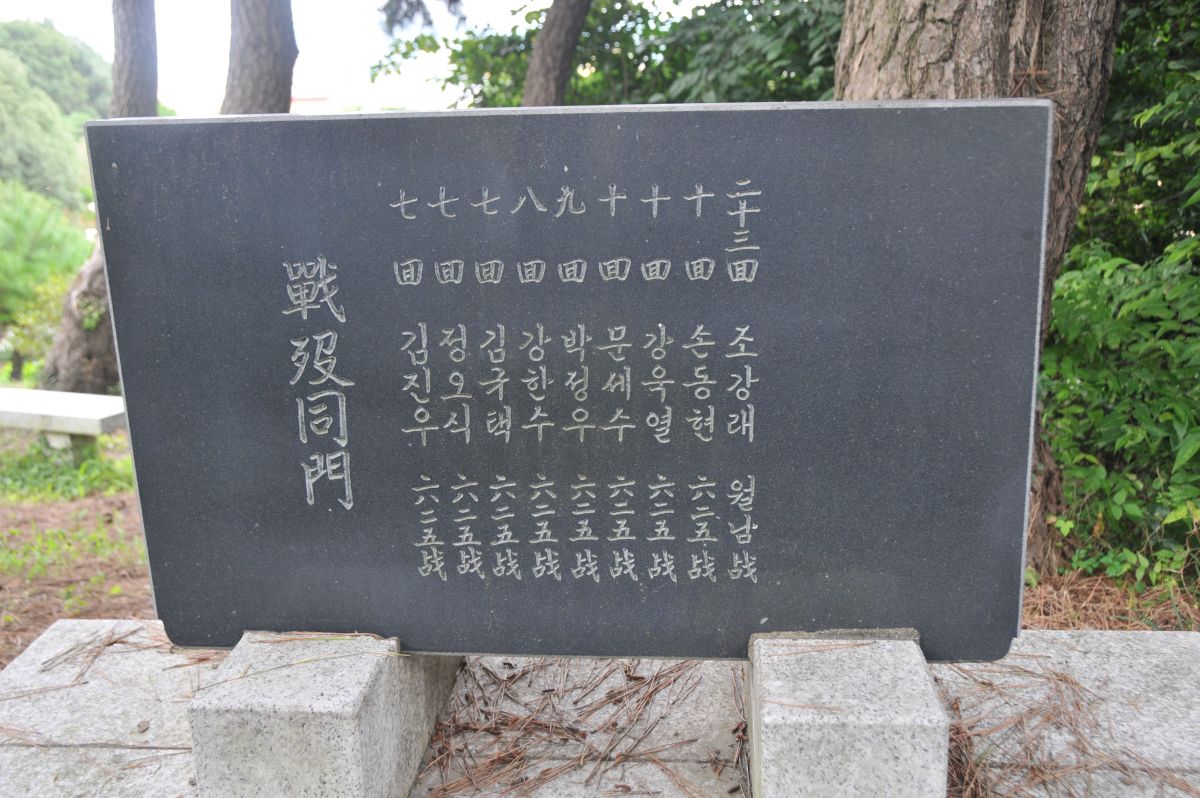 戰歿同門
七回 김진우 六二五战
七回 정오식 六二五战
七回 김구택 六二五战
八回 강한수 六二五战
九回 박정우 六二五战
十回 문세수 六二五战
十回 강욱열 六二五战
十回 손동현 六二五战
二十三回 조강래 월남战